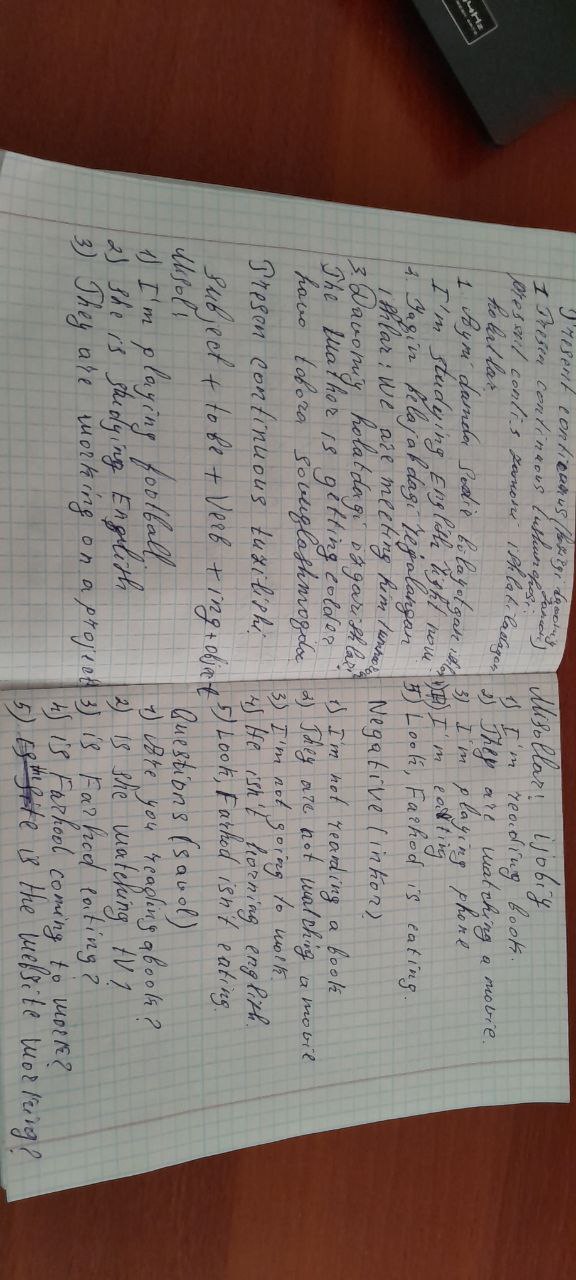 Present continuous (hozirgi davomiy zamon)
1 Presen continuous (ushun qoq)
present contis zamoni ishlatiladigan
holatlar
1 Ayni damda sodir bolayotgan ish
I'm studying English right now
2. Yaqin kelajakdagi rejalangan
ishlar: We are meeting him
3 Davomiy holatdagi ozgarishlar
The Wather is getting colder
havo tobora sowuqlashmoqda
Presen continuous tuzilishi
Subject + to be + Verb + ing + object
Misol:
1) I'm playing football
2) She is studying English
3) They are working on a project
Misollar: ijobiy
1) I'm reading book.
2) They are watching a movie.
3) I'm playing phone
4) I'm eating
5) Look, Farhod is eating.
Negative (inkor)
1) I'm not reading a book
2) They are not watching a movie
3) I'm not going to work.
4) He isn't lorning english.
5) Look, Farhod isn't eating.
Questions (savol)
1) Are you reading a book?
2) is she watching tv?
3) is Farhod eating?
4) is Farhod coming to work?
5) is the website working?